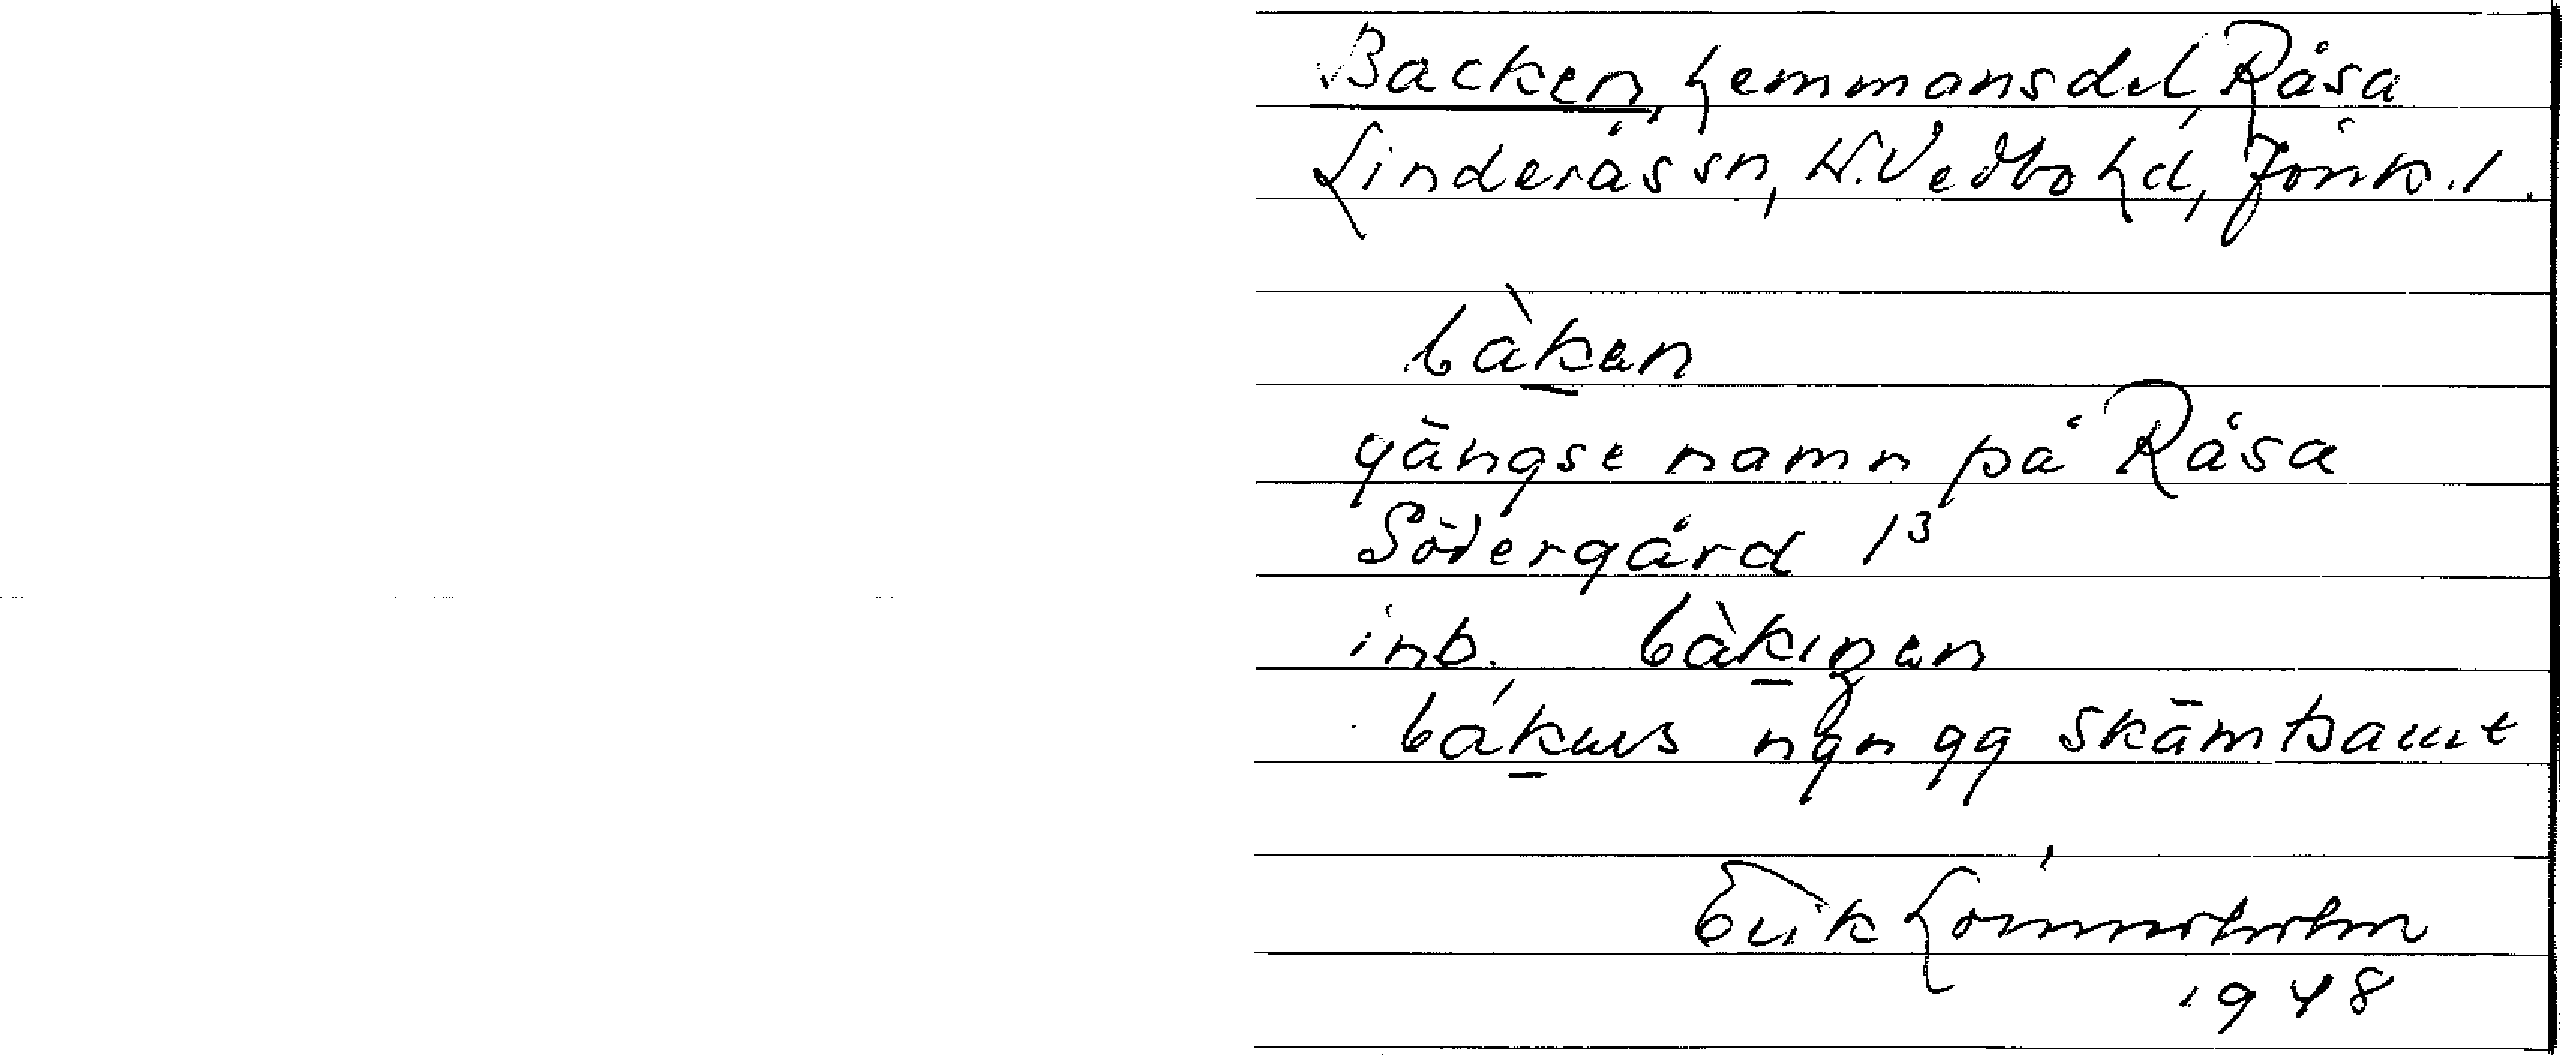 Backen, hemmansdel, Råsa
Linderås sn, N. Vedbo hd, Jönk. l.
bàkan
gängse namn på Råsa
Södergård 1³
inb. bàkıŋan
bákus ngn gg skämtsamt
Erik Lönnerholm
1948